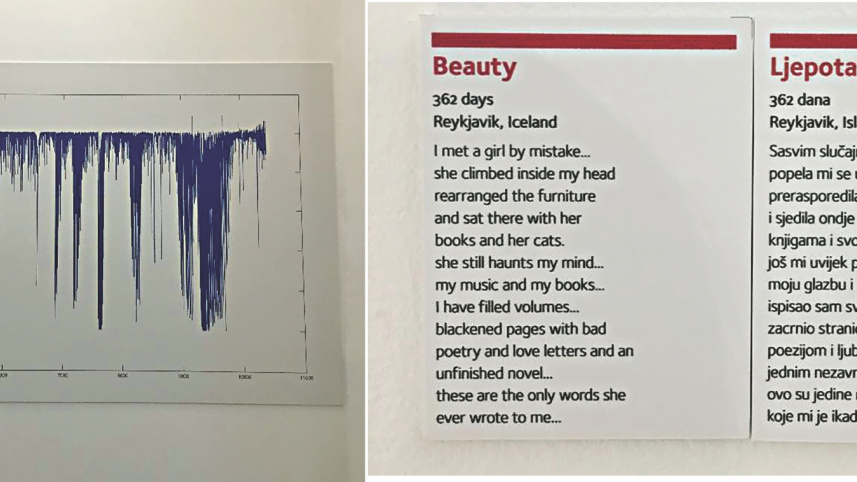 7000
8000
9000
10000
11000
Beauty
362 days
Reykjavik, Iceland
I met a girl by mistake...
she climbed inside my head
rearranged the furniture
and sat there with her
books and her cats.
she still haunts my mind...
my music and my books...
I have filled volumes...
blackened pages with bad
poetry and love letters and an
unfinished novel...
these are the only words she
ever wrote to me...
Ljepota
362 dana
Reykjavik, Isl
Sasvim slučaj
popela mi se u
prerasporedila
i sjedila ondje
knjigama i svo
još mi uvijek p
moju glazbu i
ispisao sam sv
zacrnio stranic
poezijom i ljub
jednim nezavr
ovo su jedine
koje mi je ikad